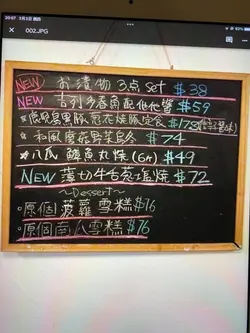 20:07
002.JPG
NEW お漬物3点 set $38
NEW 吉列多春魚配他他醬 $59
*鹿兒島黑豚葱花燒豚定食 $178
*和風磨菇野菜烏冬 $74
*八爪鱆魚丸燒(6件) $49
NEW 薄切牛舌塩燒 $72
~Dessert~
◦原個菠蘿雪糕 $76
◦原個南 雪糕 $76